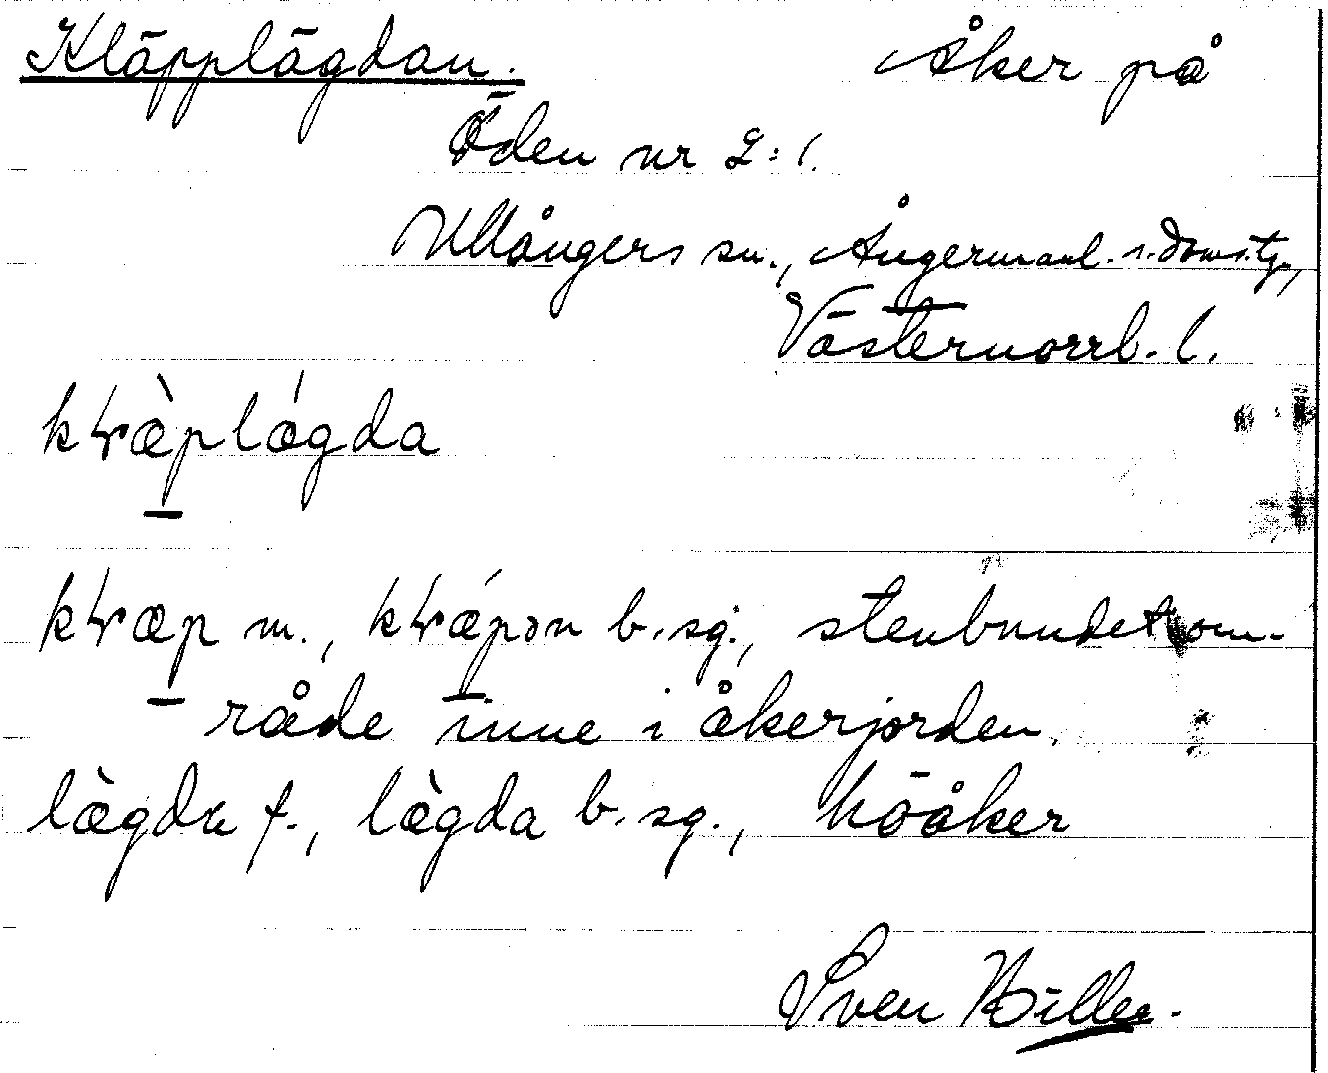 Kläpplägdan. Åker på
Öden nr 2:1.
Ullångers sn., Ångermanl. s. doms. tg.,
Västernorrl. l.
kɫræ̀plǽgda
kɫræp m., kɫrǽpən b. sg., stenbundet om-
råde inne i åkerjorden.
læ̀gda f., læ̀gda b. sg., höåker
Sven